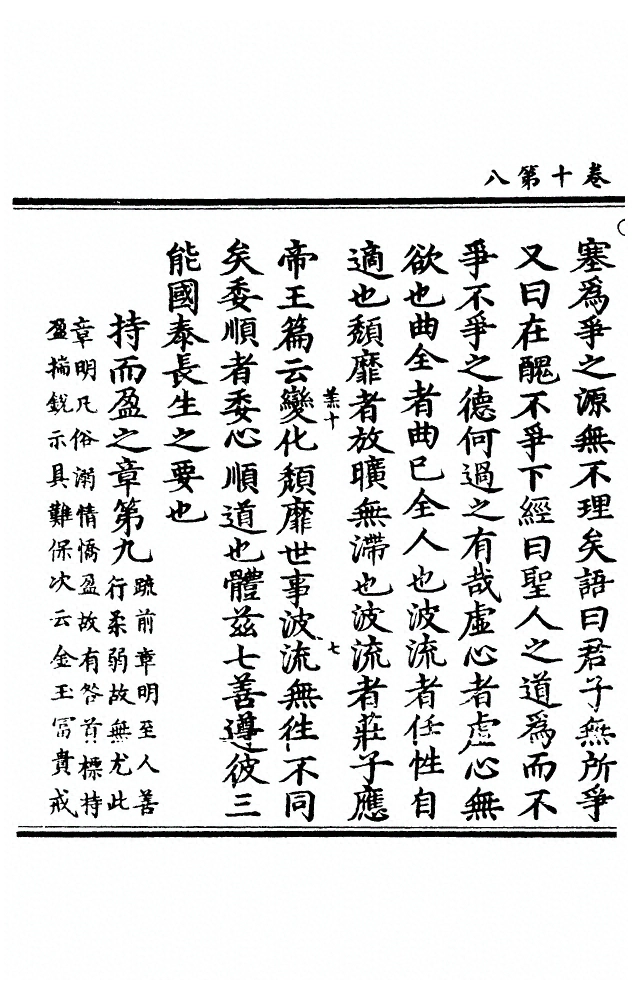 卷十第八
塞爲爭之源無不理矣語曰君子無所爭
又曰在醜不爭下經曰聖人之道爲而不
爭不爭之德何過之有哉虛心者虛心無
欲也曲全者曲己全人也波流者任性自
適也頹靡者放曠無滯也波流者莊子應
羔十 七
帝王篇云變化頹靡世事波流無往不同
矣委順者委心順道也體茲七善遵彼三
能國泰長生之要也
持而盈之章第九
疏前章明至人善
行柔弱故無尤此
章明凡俗溺情憍盈故有咎首標持
盈揣銳示具難保次云金玉富貴戒